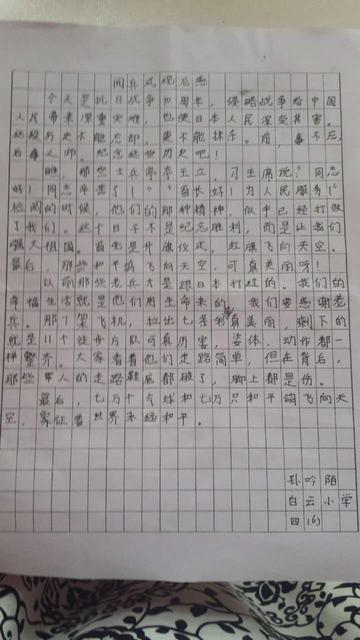 阅兵式观后感
今天是抗日战争70周年，侵略战争给中国
人民带来深重灾难，也使日本人民深受其害。
这段历史不能忘却，更不能抹杀。前事不忘，
后事之师。纪念这些历史吧！
瞧，那些士兵亭亭玉立，习主席说："同志
好！同志辛苦了！""首长好！为人民服务！"
检阅的时候，他们的那种精神，似乎已经打败
了我们。这个日子不是纪念胜利，而是让我们
强大祖国。首先是升旗仪式，红旗飞向天空。
最后，那些和平鸽飞向天空，可真美丽呀！
以前那些老兵才是跟日本打仗的。我们的
幸福生活就是他们用生命来的。我们要感谢老
兵。那7架飞机，拉出七条彩真美丽，剩下的
就是11个徒步方队可真厉害，姿体、动作都一
样整齐。大家看着他们走路简单，但在背后，
那些军人的走路鞋底都破了，脚上都是伤。
最后，七万个气球和七万只和平鸽飞向天
空，象征着世界永远和平。
孙吟陌
白云小学
四(6)